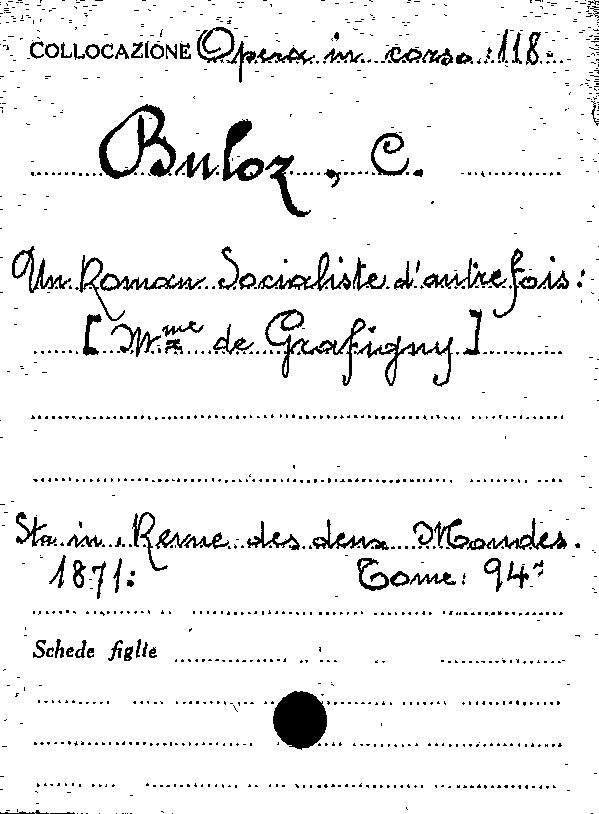 COLLOCAZIONE Opera in corso :118.
Buloz, C.
Un Roman Socialiste d'autrefois:
[Mme de Grafigny]
Sta in. Revue des deux Mondes.
1871: Tome: 94
Schede figlie